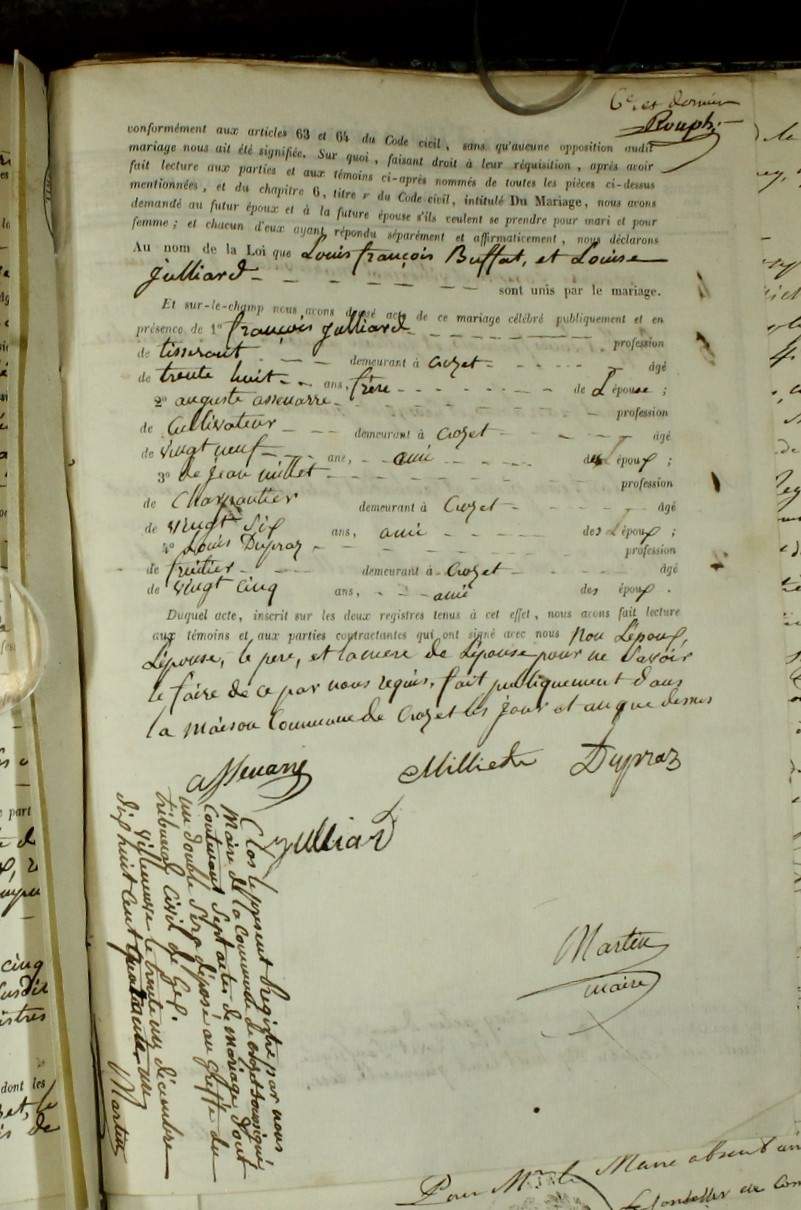 6e. et dernier
Rouph
conformément aux articles 63 et 64 du Code civil, sans qu'aucune opposition audit
mariage nous ait été signifiée. Sur quoi, faisant droit à leur réquisition, après avoir
fait lecture aux parties et aux témoins ci-après nommés de toutes les pièces ci-dessus
mentionnées, et du chapitre 6, titre r du Code civil, intitulé Du Mariage, nous avons
demandé au futur époux et à la future épouse s'ils veulent se prendre pour mari et pour
femme ; et chacun d'eux ayant répondu séparément et affirmativement, nous déclarons
Au nom de la Loi que Louis françois Buffat, et Louise
Julliard sont unis par le mariage.
Et sur-le-champ nous avons dressé acte de ce mariage célébré publiquement et en
présence de 1° françois Julliard profession
de tisserant demeurant à Crozet âgé
de trente huit ans, frère de L'épouse ;
2° auguste assenarre profession
de Cultivateur demeurant à Crozet âgé
de vingt neuf ans, ami de L'époux ;
3° de jean millet profession
de Charpantier demeurant à Crozet âgé
de vingt six ans, ami des époux ;
4° Louis Dupraz profession
de fruitier demeurant à Crozet âgé
de vingt cinq ans, ami des époux.
Duquel acte, inscrit sur les deux registres tenus à cet effet, nous avons fait lecture
aux témoins et aux parties contractantes qui ont signé avec nous Non L'époux,
L'épouse, le pere, et la mere de L'épouse pour ne Savoir
le faire de ce par nous requis, fait publiquement dans
la maison Commune de Crozet les jour et an que dessus
assenarre Milliet Dupraz
Julliard
Martin
maire
Clos le present Registre par nous
Maire de la Commune de Crozet soussigné
Contenant Sept actes de mariage, dont
un double Sera déposé au greffe du
tribunal Civil de Gex
le trente un décembre
dix huit cent quarante un
Martin
Pour Mr. le Maire absent